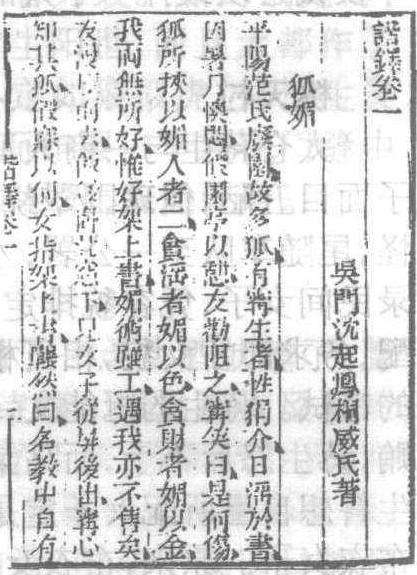 諧鐸卷一
吳門沈起鳳桐威氏著
狐媚
平陽范氏廢園故多狐有寗生者性狷介日溺於書
因暑月懊悶假園亭以憩友勸阻之寗笑曰是何傷
狐所挾以媚人者二貪淫者媚以色貪財者媚以金
我兩無所好惟好架上書媚術雖工遇我亦不售矣
友漫而去飯後窓下見女子從屏後出寗心
知其狐假寐以伺女指架上書囅然曰名教中自有
諧鐸卷一
一